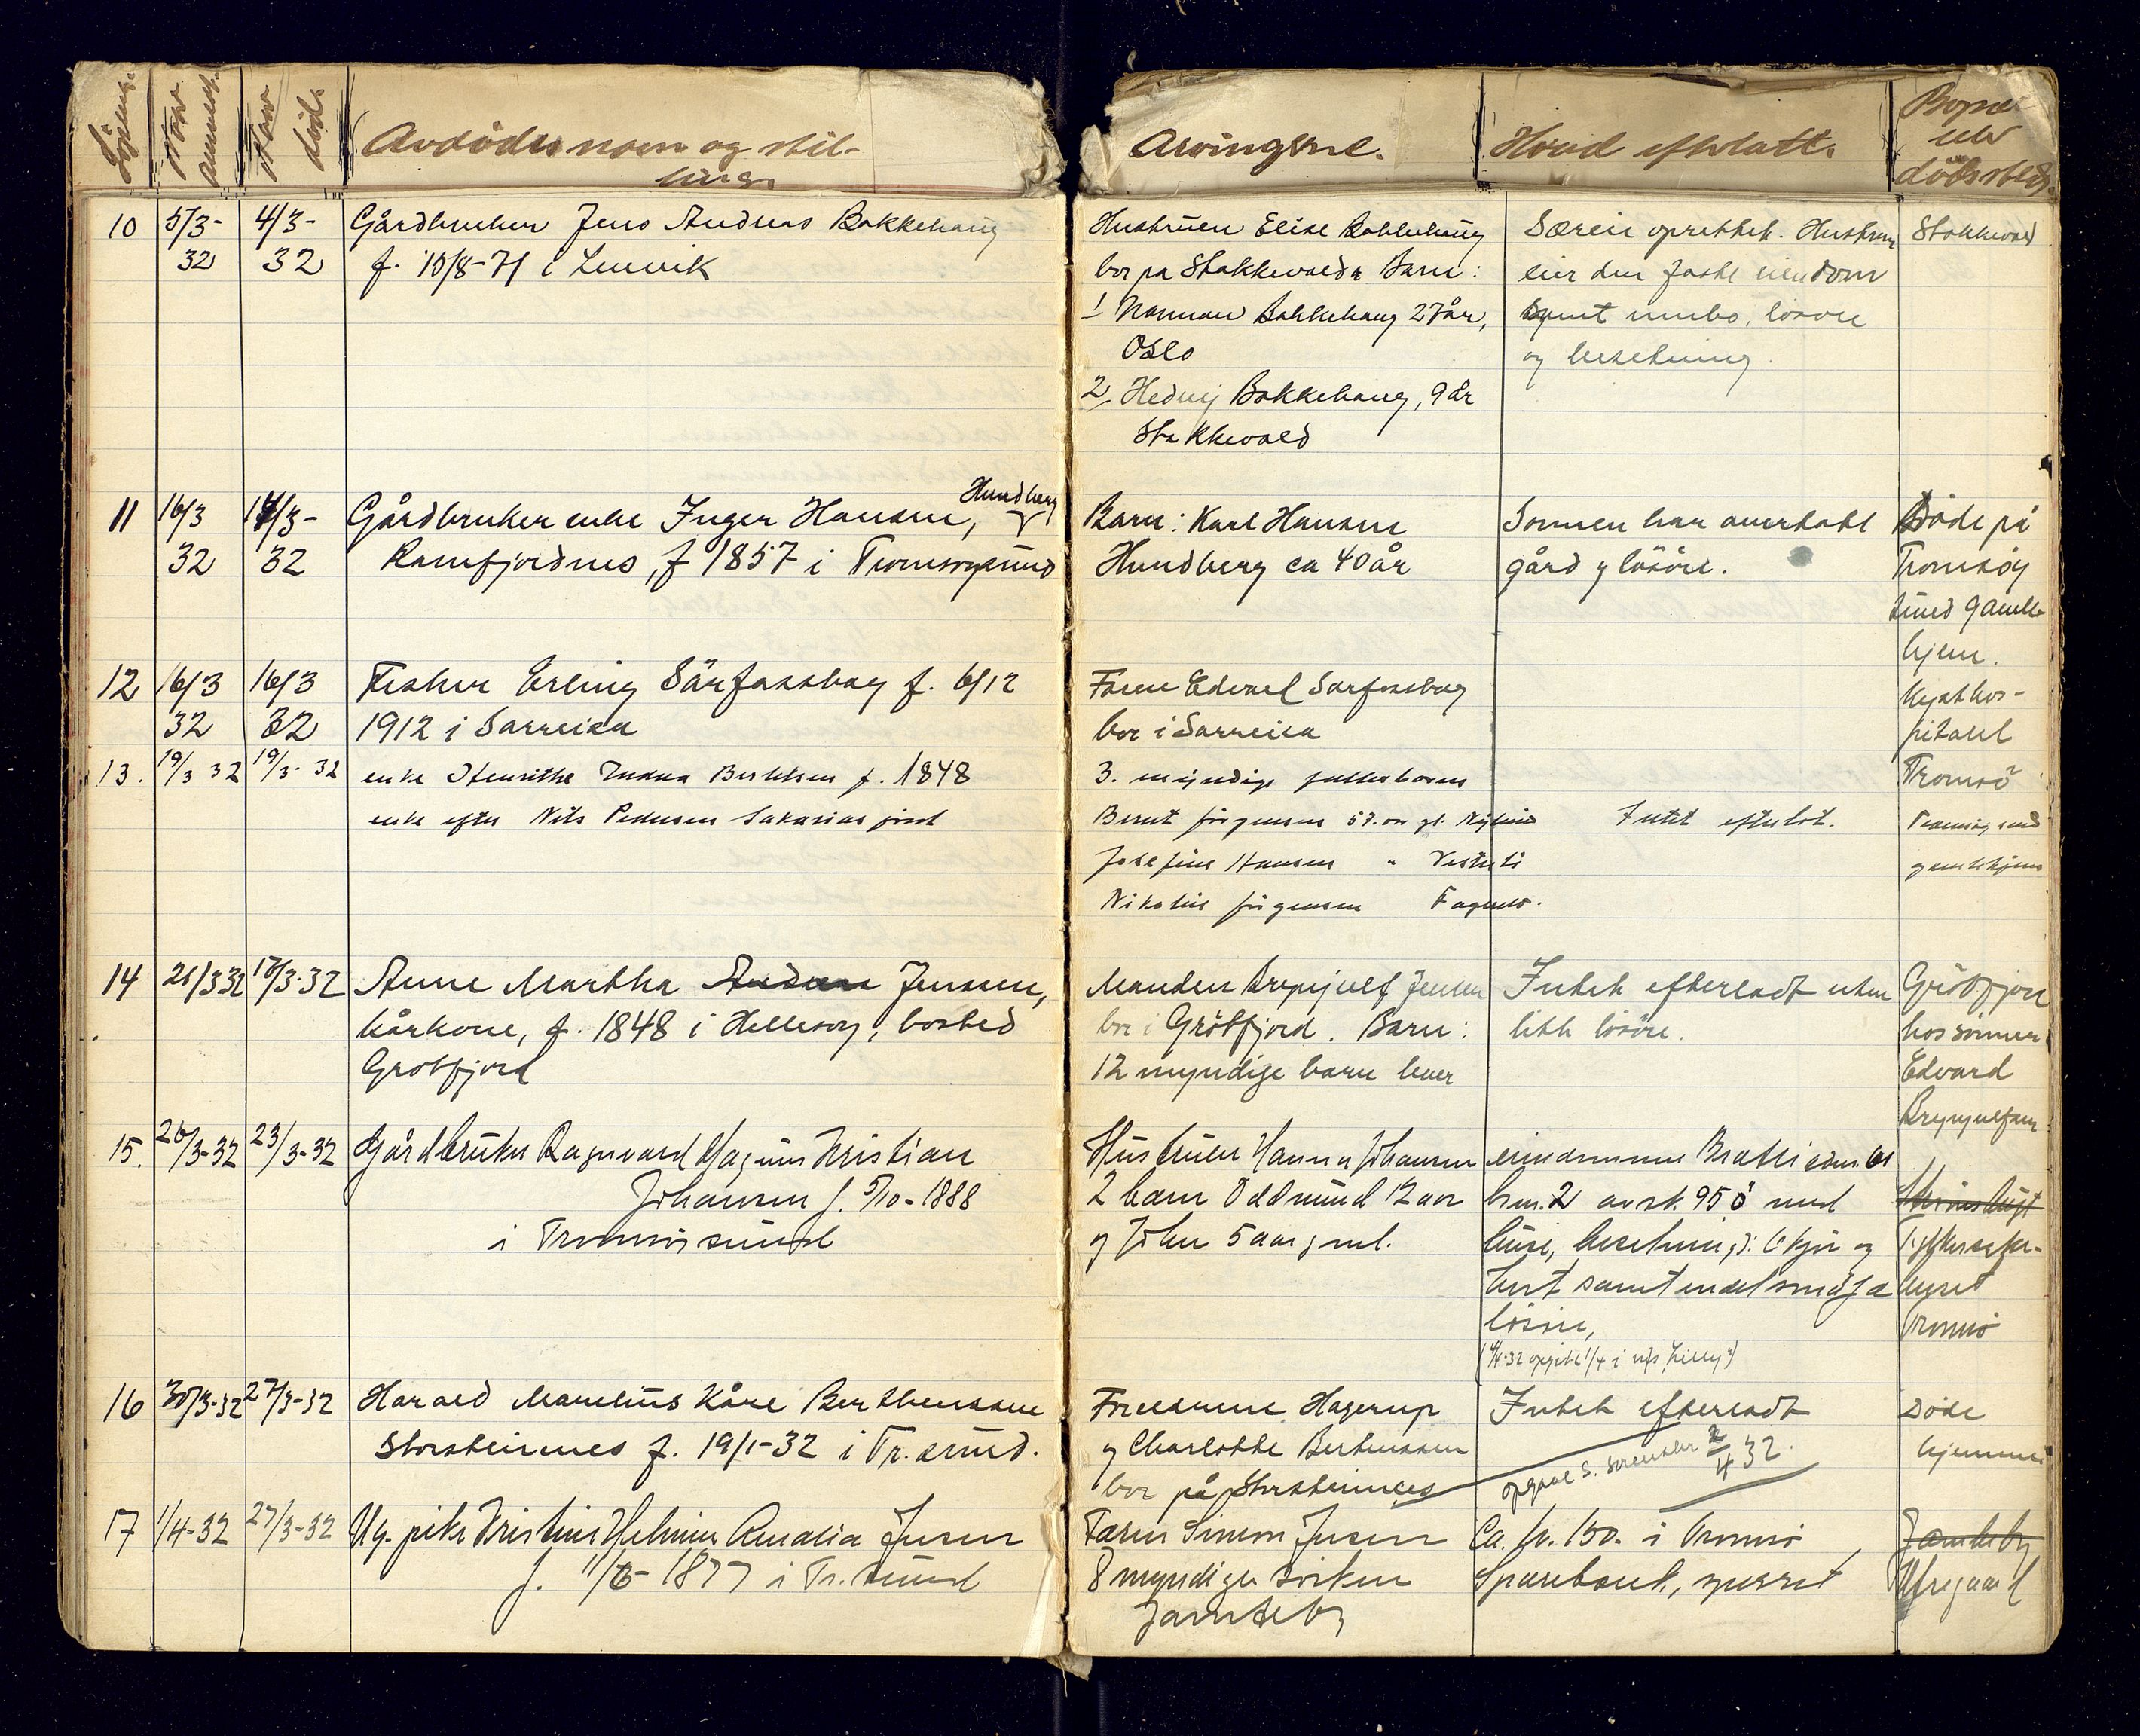 Når anmeldt.
Når død.
Avdødes navn og stil-
ling.
Arvingene.
Hvad efterlatt.
Bopel
eller
dødssted.
10 5/3- 4/3- Gårdbruker Jens Andreas Bakkehaug
32 32 f. 10/8-71 i Lenvik
Hustruen Elise Bakkehaug
bor på Stakkevold. Barn:
1 Norman Bakkehaug 27 år,
Oslo
2, Hedvig Bakkehaug, 9 år
Stakkevold
Særeie oprettet. Hustruen
eier den faste eiendom
samt innbo, løsøre
og besetning.
Stakkevold
11 16/3 14/3- Gårdbruker enke Inger Hansen, Hundberg
32 32 Ramfjordnes, f 1857 i Tromsøysund
Barn: Karl Hansen
Hundberg ca 40 år
Sønnen har overtatt
gård og løsøre.
Døde på
Tromsøy
sund gamle
hjem.
12 16/3 16/3 Fisker Erling Sørfossbog f. 6/12
32 32 1912 i Sørreisa
Faren Edvard Sørfossbog
bor i Sørreisa
Kysthos-
pitalet
Tromsø
13. 19/3 32 19/3. 32 enke Henrikke Berthsen f. 1848
enke efter Nils Pedersen Sakariasjord
3. myndige fullerbarn
Bernt Jørgensen 57. år gl.
Josefine Hansen "
Nikolai Jørgensen Fagernes.
Intet efterlat.
Tromsøysund
gamlehjem
14 21/3 32 18/3-32 Anne Martha Andrea Jensen,
kårkone, f. 1848 i Hellesøy, bosted
Grøtfjord
Manden Brynjulf Jensen
bor i Grøtfjord. Barn:
12 myndige barn lever
Intet efterladt uten
litt løsøre.
Grøtfjord
hos sønnen
Edvard
Brynjulfsen
15. 26/3-32 23/3-32 Gårdbruker Ragnvard Magnus Kristian
Johansen f. 5/10-1888
i Tromsøysund
Hustruen Hanna Johansen
2 barn Oddmund 12 aar
og John 5 aar gml.
eiendommen Bratli gnr. 61
brn. 2 av sk. 95 ø med
huse, besetning: 6 kjør og
hest samt endel småfæ
løsøre,
Sykehuset
Tromsø
16 30/3-32 27/3-32 Harald Marelius Kåre Berthenssen
Storsteinnes f. 19/1-32 i Tr.sund.
Foreldrene Hagerup
og Charlotte Berthenssen
bor på Storsteinnes
Intet efterladt
opgave S. 2/4 32.
Døde
hjemme
17 1/4-32 27/3-32 Ug. pike Kristine Helmine Amalia Jensen
f. 11/6-1877 i Tr.sund
Faren Simon Jensen
8 myndige søsken
Jamteby
Ca. kr. 150. i Tromsø
Sparebank, sperret
Jamteby